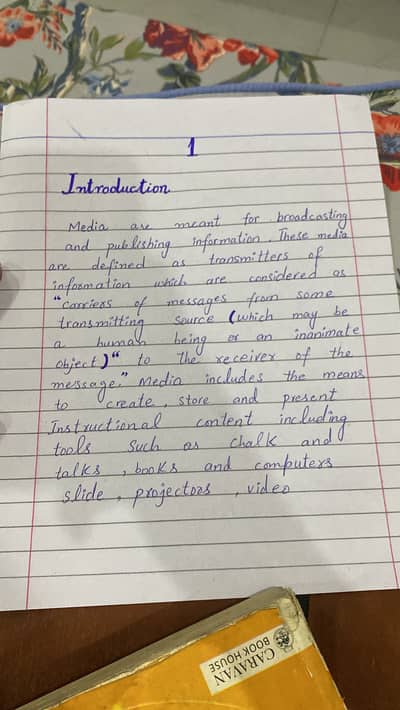 1
Introduction
Media are meant for broadcasting
and publishing information. These media
are defined as transmitters of
information which are considered as
"carriers of messages from some
transmitting source (which may be
a human being or an inanimate
object)" to the receiver of the
message." Media includes the means
to create, store and present
Instructional content including
tools such as chalk and
talks , books and computers
slide , projectors , video
CARAVAN
BOOK HOUSE